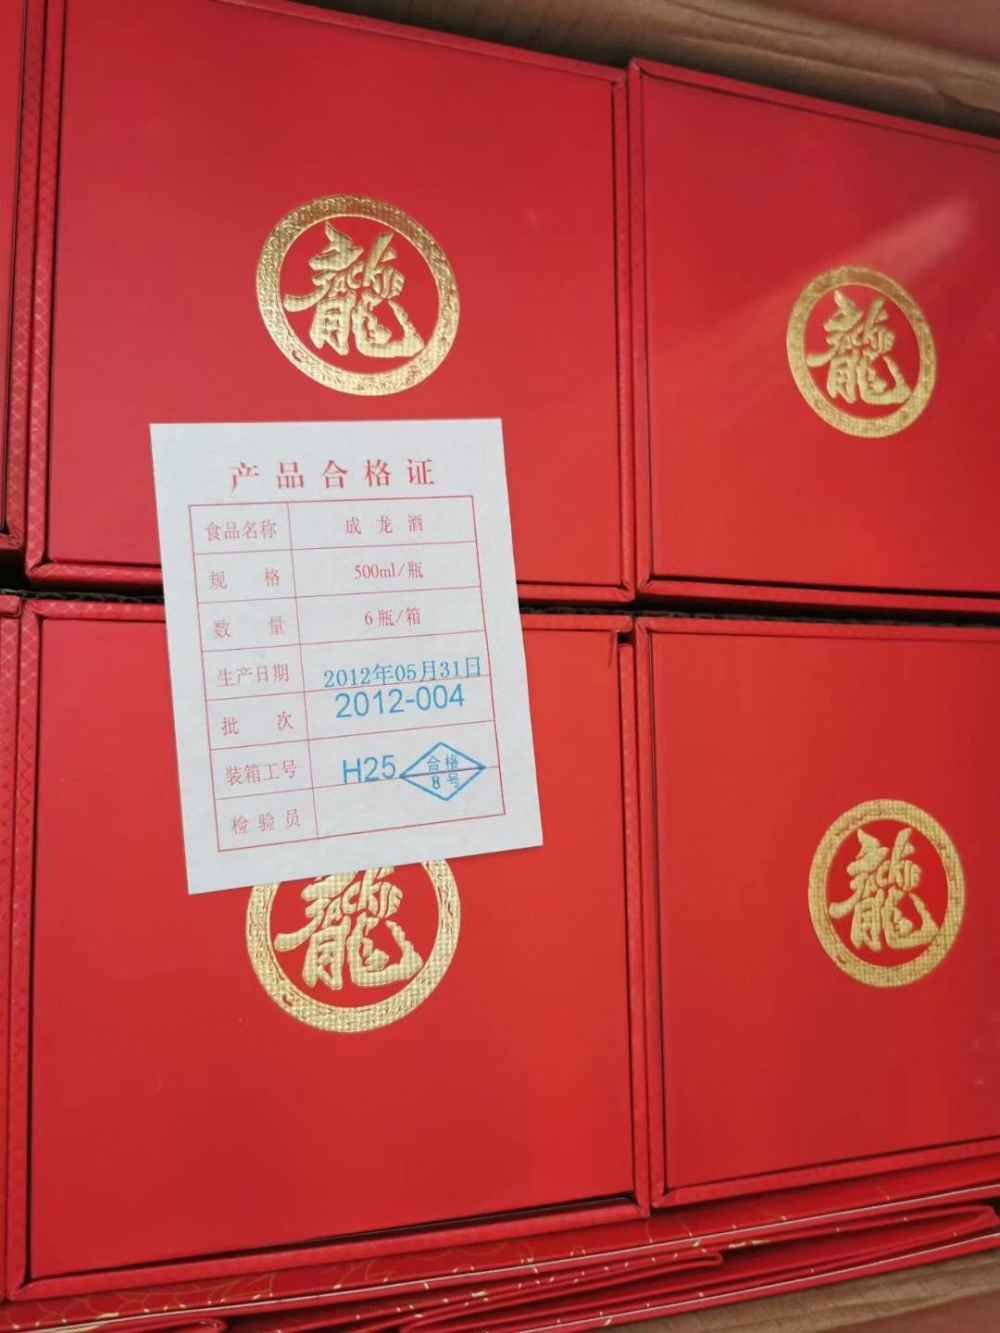 龍
龍
产品合格证
食品名称 成龙酒
规格 500ml/瓶
数量 6瓶/箱
生产日期 2012年05月31日
批次 2012-004
装箱工号 H25
合格
8号
检验员
龍
龍